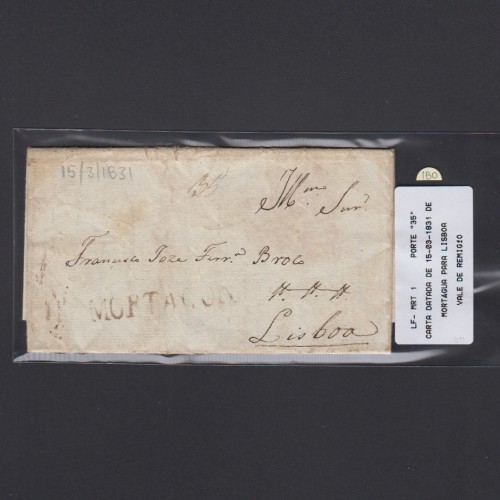 15/3/1831
35
Mmo Snr
Francisco Joze Ferr.a Broco
MORTAGOA
H. H. H
Lisboa
180
LF- MRT 1 PORTE "35"
CARTA DATADA DE 15-03-1831 DE
MORTAGUA PARA LISBOA
VALE DE REMIGIO